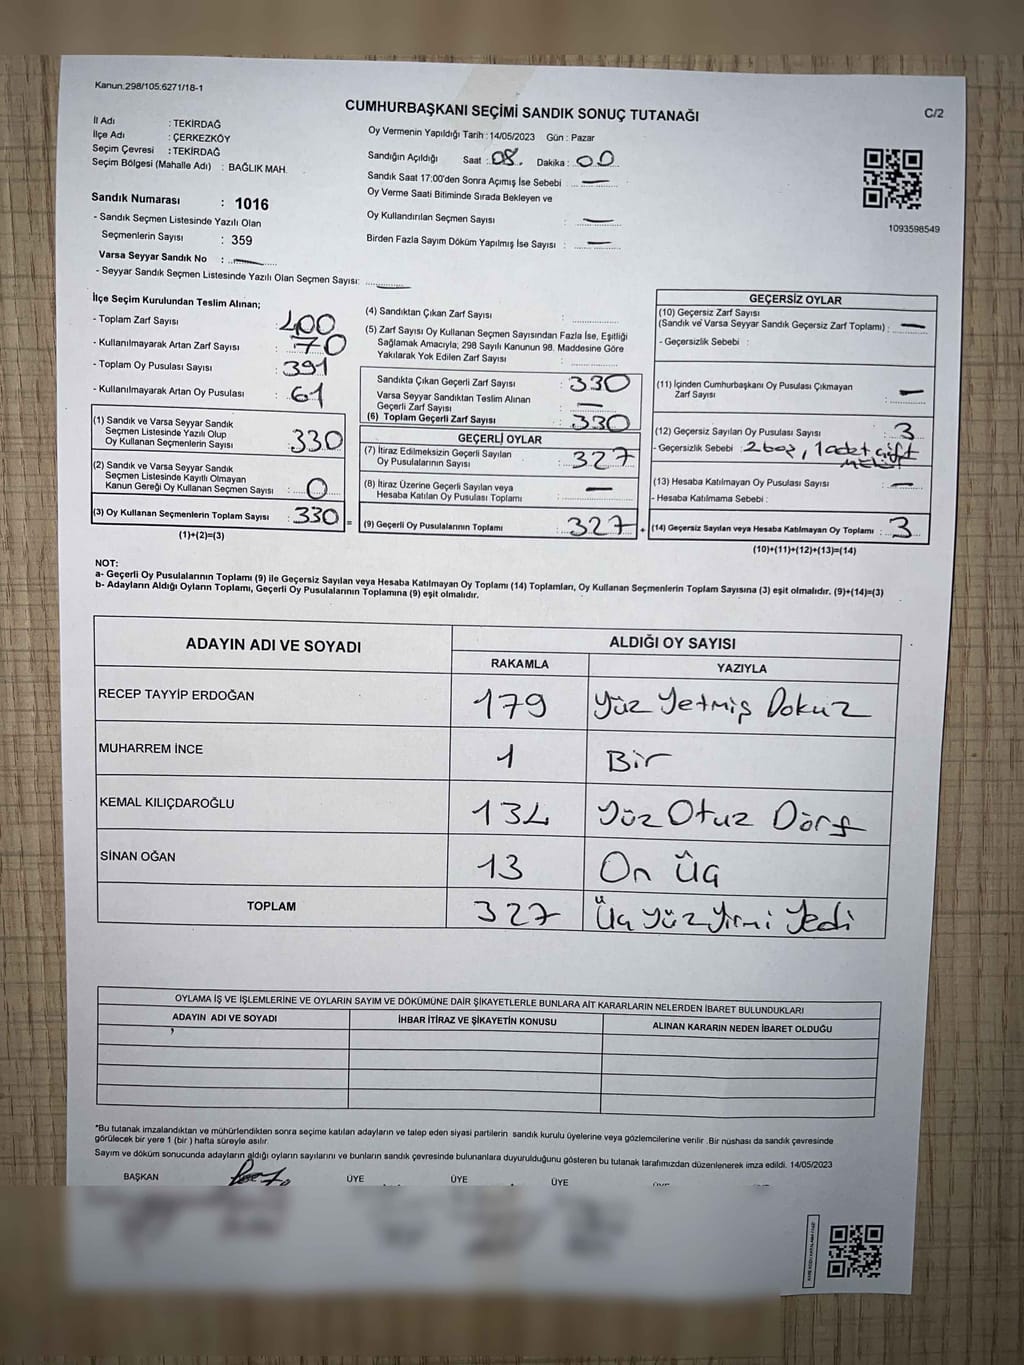 Kanun.298/105.6271/18-1
CUMHURBAŞKANI SEÇİMİ SANDIK SONUÇ TUTANAĞI
C/2
İl Adı : TEKİRDAĞ
İlçe Adı : ÇERKEZKÖY
Seçim Çevresi : TEKİRDAĞ
Seçim Bölgesi (Mahalle Adı) : BAĞLIK MAH.
Oy Vermenin Yapıldığı Tarih : 14/05/2023 Gün : Pazar
Sandığın Açıldığı Saat : 08. Dakika : 00
Sandık Saat 17:00'den Sonra Açımış İse Sebebi : —
Oy Verme Saati Bitiminde Sırada Bekleyen ve
Oy Kullandırılan Seçmen Sayısı : —
Birden Fazla Sayım Döküm Yapılmış İse Sayısı : —
1093598549
Sandık Numarası : 1016
- Sandık Seçmen Listesinde Yazılı Olan
Seçmenlerin Sayısı : 359
Varsa Seyyar Sandık No : —
- Seyyar Sandık Seçmen Listesinde Yazılı Olan Seçmen Sayısı: —
İlçe Seçim Kurulundan Teslim Alınan;
- Toplam Zarf Sayısı : 400
- Kullanılmayarak Artan Zarf Sayısı : 70
- Toplam Oy Pusulası Sayısı : 391
- Kullanılmayarak Artan Oy Pusulası : 61
(1) Sandık ve Varsa Seyyar Sandık
Seçmen Listesinde Yazılı Olup
Oy Kullanan Seçmenlerin Sayısı : 330
(2) Sandık ve Varsa Seyyar Sandık
Seçmen Listesinde Kayıtlı Olmayan
Kanun Gereği Oy Kullanan Seçmen Sayısı : 0
(3) Oy Kullanan Seçmenlerin Toplam Sayısı : 330 =
(1)+(2)=(3)
(4) Sandıktan Çıkan Zarf Sayısı :
(5) Zarf Sayısı Oy Kullanan Seçmen Sayısından Fazla İse, Eşitliği
Sağlamak Amacıyla; 298 Sayılı Kanunun 98. Maddesine Göre
Yakılarak Yok Edilen Zarf Sayısı :
Sandıkta Çıkan Geçerli Zarf Sayısı : 330
Varsa Seyyar Sandıktan Teslim Alınan
Geçerli Zarf Sayısı : —
(6) Toplam Geçerli Zarf Sayısı : 330
GEÇERLİ OYLAR
(7) İtiraz Edilmeksizin Geçerli Sayılan
Oy Pusulalarının Sayısı : 327
(8) İtiraz Üzerine Geçerli Sayılan veya
Hesaba Katılan Oy Pusulası Toplamı : —
(9) Geçerli Oy Pusulalarının Toplamı : 327 +
GEÇERSİZ OYLAR
(10) Geçersiz Zarf Sayısı
(Sandık ve Varsa Seyyar Sandık Geçersiz Zarf Toplamı) : —
- Geçersizlik Sebebi :
(11) İçinden Cumhurbaşkanı Oy Pusulası Çıkmayan
Zarf Sayısı : —
(12) Geçersiz Sayılan Oy Pusulası Sayısı : 3
- Geçersizlik Sebebi : 2 boş, 1 adet çift
(13) Hesaba Katılmayan Oy Pusulası Sayısı : —
- Hesaba Katılmama Sebebi :
(14) Geçersiz Sayılan veya Hesaba Katılmayan Oy Toplamı : 3
(10)+(11)+(12)+(13)=(14)
NOT:
a- Geçerli Oy Pusulalarının Toplamı (9) ile Geçersiz Sayılan veya Hesaba Katılmayan Oy Toplamı (14) Toplamları, Oy Kullanan Seçmenlerin Toplam Sayısına (3) eşit olmalıdır. (9)+(14)=(3)
b- Adayların Aldığı Oyların Toplamı, Geçerli Oy Pusulalarının Toplamına (9) eşit olmalıdır.
ADAYIN ADI VE SOYADI ALDIĞI OY SAYISI
RAKAMLA YAZIYLA
RECEP TAYYİP ERDOĞAN 179 Yüz Yetmiş Dokuz
MUHARREM İNCE 1 Bir
KEMAL KILIÇDAROĞLU 134 Yüz Otuz Dört
SİNAN OĞAN 13 On Üç
TOPLAM 327 Üç Yüz Yirmi Yedi
OYLAMA İŞ VE İŞLEMLERİNE VE OYLARIN SAYIM VE DÖKÜMÜNE DAİR ŞİKAYETLERLE BUNLARA AİT KARARLARIN NELERDEN İBARET BULUNDUKLARI
ADAYIN ADI VE SOYADI İHBAR İTİRAZ VE ŞİKAYETİN KONUSU ALINAN KARARIN NEDEN İBARET OLDUĞU
*Bu tutanak imzalandıktan ve mühürlendikten sonra seçime katılan adayların ve talep eden siyasi partilerin sandık kurulu üyelerine veya gözlemcilerine verilir .Bir nüshası da sandık çevresinde
görülecek bir yere 1 (bir ) hafta süreyle asılır.
Sayım ve döküm sonucunda adayların aldığı oyların sayılarını ve bunların sandık çevresinde bulunanlara duyurulduğunu gösteren bu tutanak tarafımızdan düzenlenerek imza edildi. 14/05/2023
BAŞKAN ÜYE ÜYE ÜYE